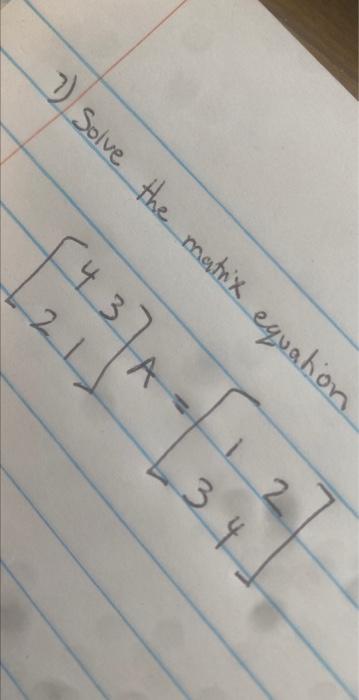 7) Solve the matrix equation
[4 3
2 1] A = [1 2
3 4]